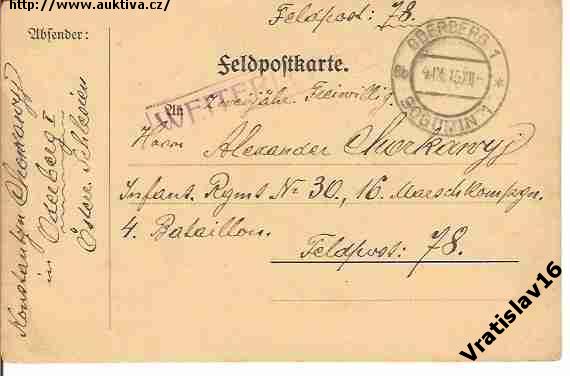 http://www.auktiva.cz/
Feldpost: 78.
Absender:
Feldpostkarte.
ODERBERG 1
BOGUMIN 1
An
Einjähr. Freiwillig.
Herrn Alexander Chorkawyj
Infant. Rgmt № 30, 16. Marschkompgn.
4. Bataillon.
Feldpost: 78.
Konstantyn Chorkawyj
in Oderberg I
Österr. Schlesien
Vratislav16